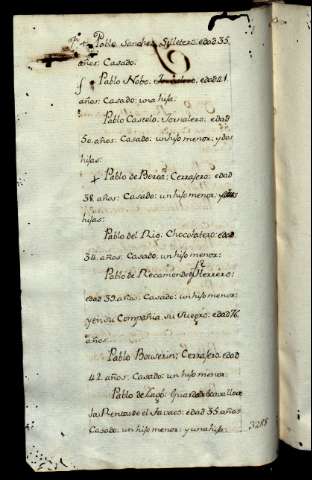 Pablo Sanchez, Silletero, edad 35.
años. Casado.
Pablo Nobo, Jornalero, edad 41
años: Casado: una hija.
Pablo Castelo, Jornalero: edad
50. años. Casado: un hijo menor: y dos
hijas:
+ Pablo de Cerrajero: edad
38. años. Casado: un hijo menor: y dos
hijas:
Pablo del Rio, Chocolatero: edad
34. años. Casado: un hijo menor:
Pablo de Recamonde, Herrero:
edad 39. años. Casado: un hijo menor:
y en su Compañia su Suegro: edad 76
años.
Pablo Bouserin: Cerrajero: edad
42. años. Casado: un hijo menor.
Pablo de Lago: Guarda de a cavallo de
las Rentas de el Tavaco: edad 35. años
Casado: un hijo menor: y una hija:
3288